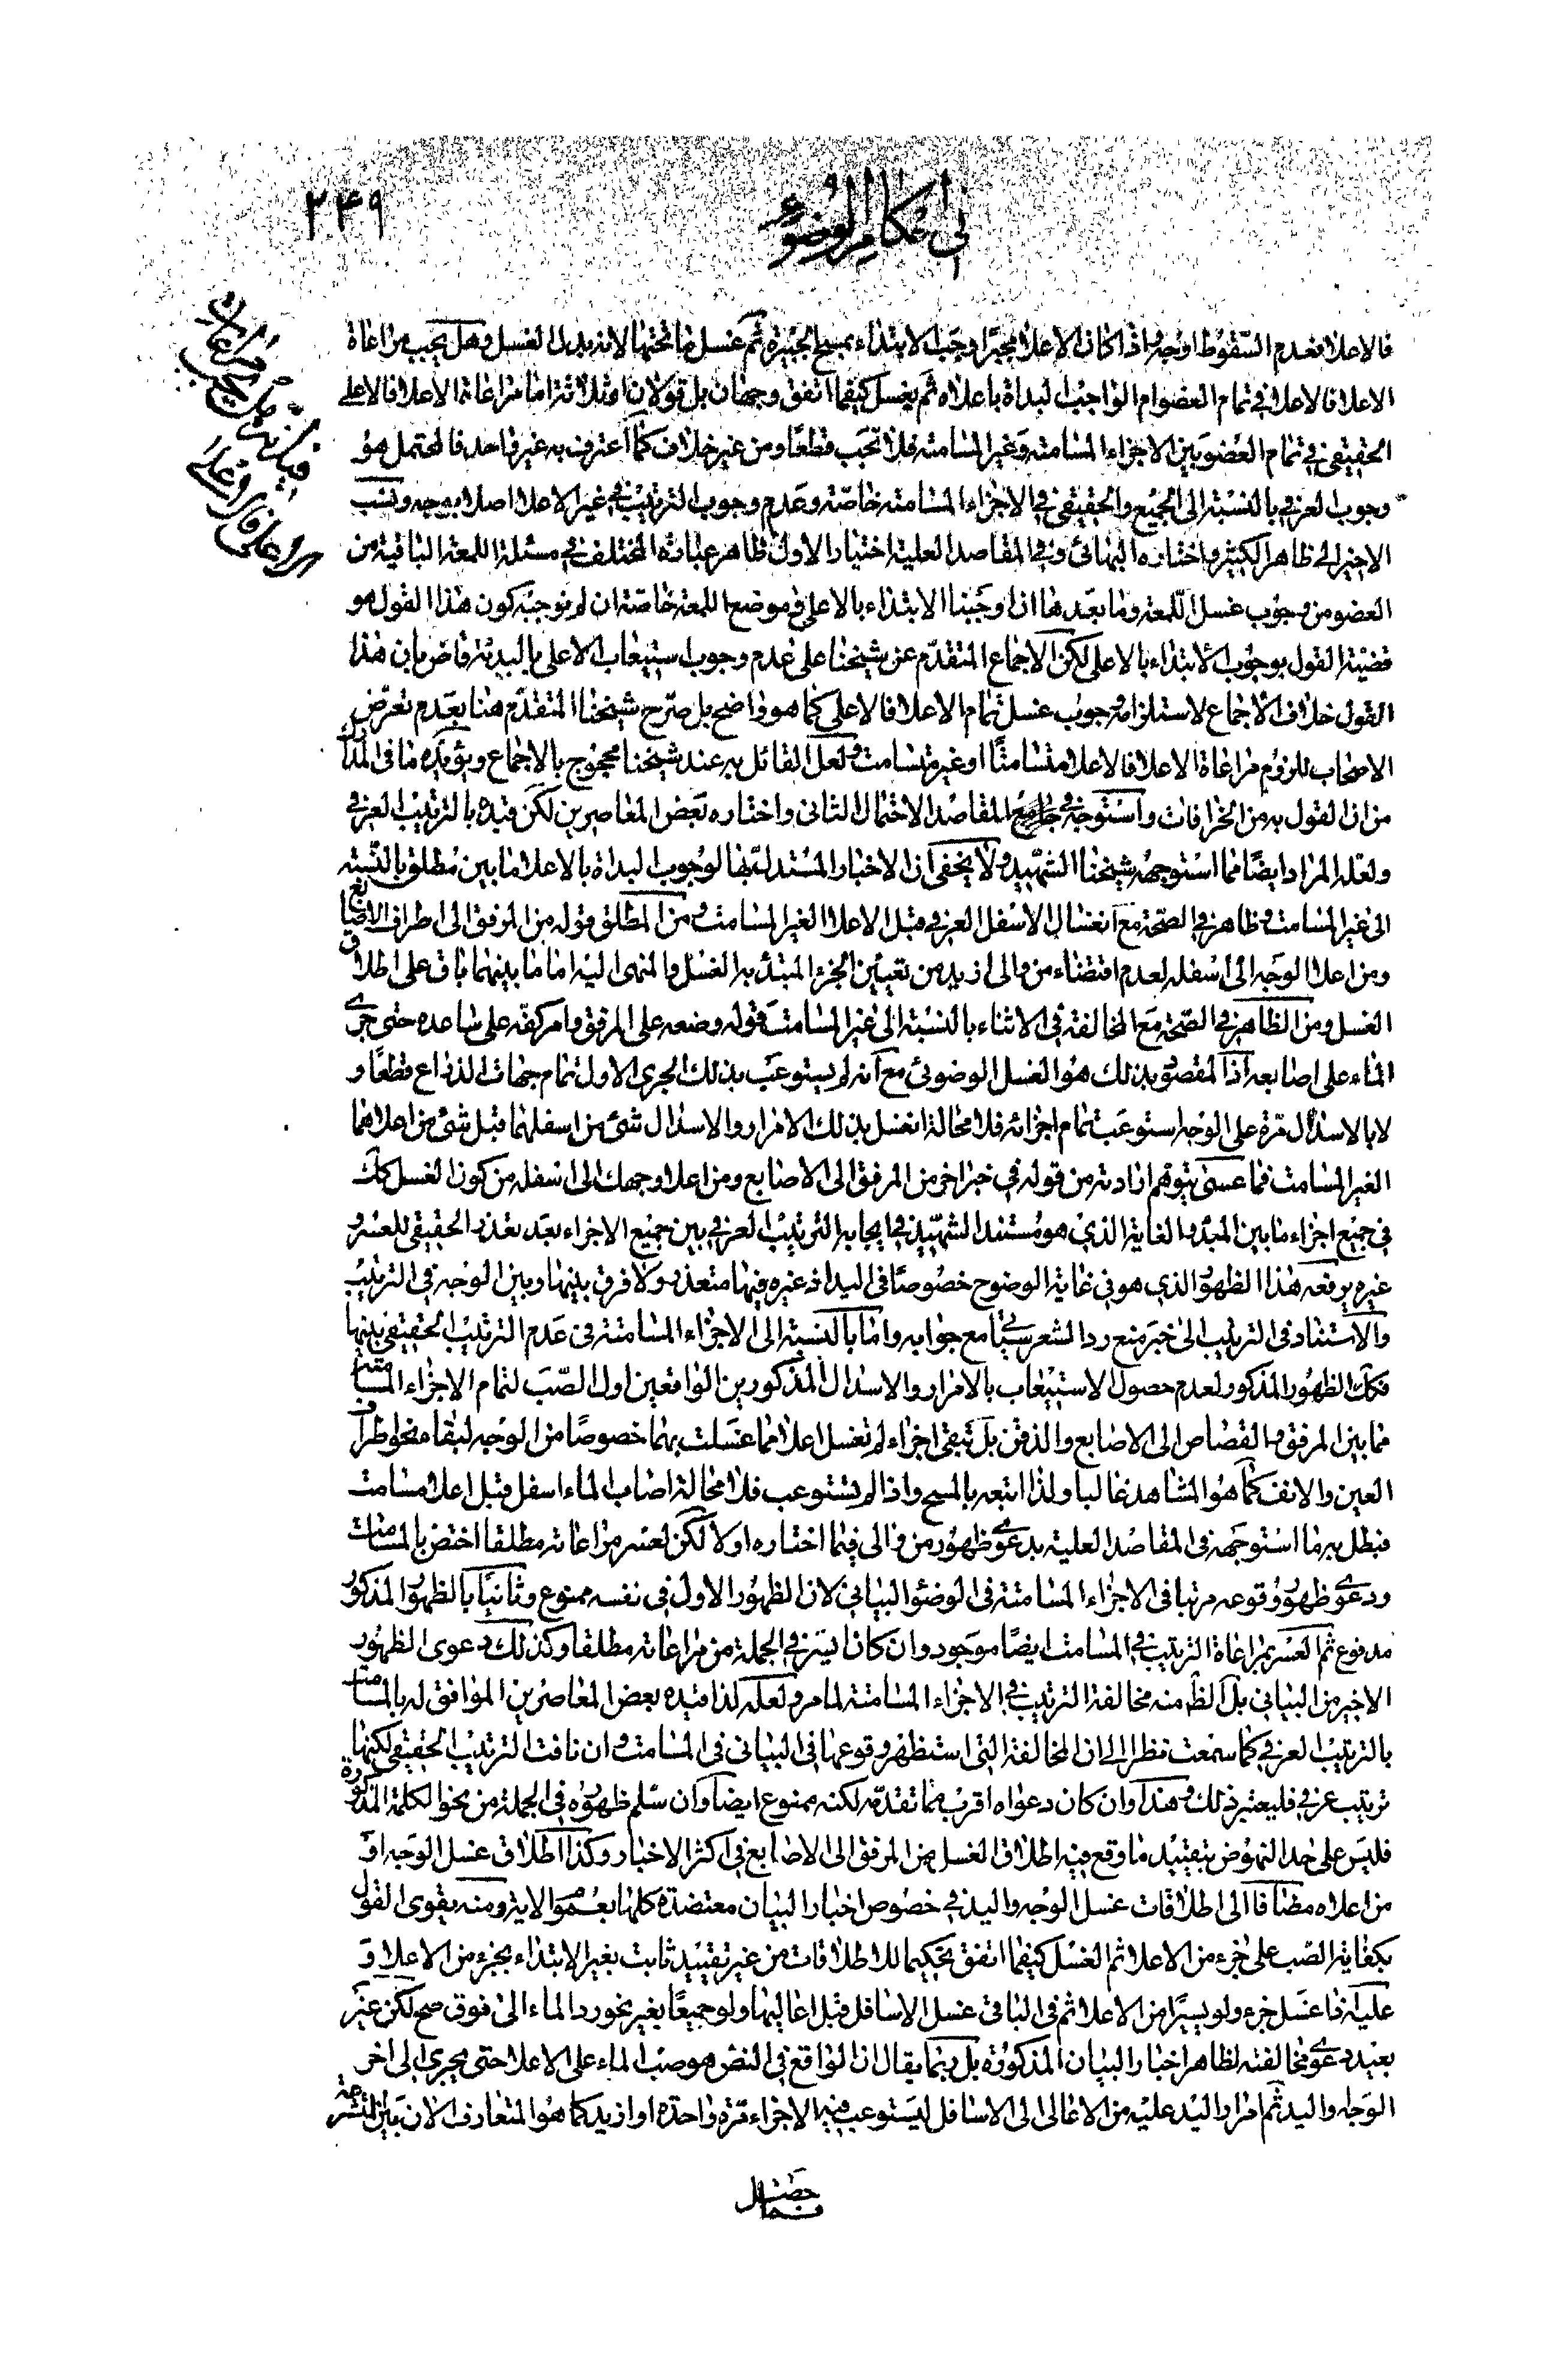 في احكام الوضوء
٢٤٩
فالاعلا فعدم السّقوط اوجه واذا كان الاعلا مجبرا وجب الابتداء بمسح الجبيرة ثم غسل ما تحتها لانه بدل الغسل وهل يجب مراعاة
الاعلا فالاعلا في تمام العضو ام الواجب البداة باعلاه ثم يغسل كيفما اتفق وجهان بل قولان او ثلاثة اما مراعاة الاعلا فالاعلى
الحقيقي في تمام العضو بين الاجزاء المسامته وغير المسامته فلا تجب قطعا ومن غير خلاف كما اعترف به غير واحد فالمحتمل هو
وجوب العرفي بالنسبة الى الجميع والحقيقي في الاجزاء المسامته خاصّة وعدم وجوب الترتيب في غير الاعلا اصلا بوجه ونسب
الاخير الى ظاهر الكثير واختاره البهائي وفي المقاصد العلية اختيار الاول ظاهر عبارة المختلف في مسئلة اللمعة الباقية من
العضو من وجوب غسل اللمعة وما بعدها ان اوجبنا الابتداء بالاعلى وموضع اللمعة خاصّة ان لم نوجبه كون هذا القول هو
قضيّة القول بوجوب الابتداء بالاعلى لكن الاجماع المتقدّم عن شيخنا على عدم وجوب استيعاب الاعلى بالبدية قاض بان هذا
القول خلاف الاجماع لاستلزامه وجوب غسل تمام الاعلا فالاعلى كما هو واضح بل صرّح شيخنا المتقدّم هنا بعدم تعرّض
الاصحاب للزوم مراعاة الاعلا فالاعلا متسامتا او غير متسامت ولعل القائل به عند شيخنا محجوج بالاجماع ويؤيّده ما في المدارك
من ان القول به من الخرافات واستوجه في جامع المقاصد الاحتمال الثاني واختاره بعض المعاصرين لكن قيده بالترتيب العرفي
ولعله المراد ايضًا مما استوجهه شيخنا الشهيد ولا يخفى ان الاخبار المستدل بها لوجوب البداة بالاعلا ما بين مطلق بالنّسبة
الى غير المسامت وظاهر في الصّحة مع انغسال الاسفل العرفي قبل الاعلا الغير المسامت ومن المطلق قوله من المرفق الى اطراف الاصابع
ومن اعلا الوجه الى اسفله لعدم اقتضاء من والى ازيد من تعيين الجزء المبتدء به الغسل والمنتهى اليه اما ما بينهما باق على اطلاق
الغسل ومن الظاهر في الصّحة مع المخالفة في الاثناء بالنسبة الى غير المسامت قوله وضعه على المرفق وامرّ كفّه على ساعده حتى جرى
الماء على اصابعه اذ المقصود بذلك هو الغسل الوضوئي مع انه لم يستوعب بذلك الجري الاول تمام جهات الذراع قطعًا و
لا بالاسدال مرّة على الوجه استوعب تمام اجزائه فلا محالة انغسل بذلك الامرار والاسدال شئ من اسفلهما قبل شئ من اعلاهما
الغير المسامت فما عسى يتوهم ارادته من قوله في خبر اخر من المرفق الى الاصابع ومن اعلا وجهك الى اسفله من كون الغسل كك
في جميع اجزاء ما بين المبدء والغاية الذي هو مستند الشهيد في ايجابه الترتيب العرفي بين جميع الاجزاء بعد تعذر الحقيقي للعسر و
غيره يرفعه هذا الظهور الذي هو في غاية الوضوح خصوصًا في اليد اذ غيره فيها متعذر ولا فرق بينها وبين الوجه في الترتيب
والاستناد في الترتيب الى خبر منع رد الشعر سياتي مع جوابه واما بالنسبة الى الاجزاء المسامتة في عدم الترتيب الحقيقي بينها
فكك الظهور المذكور لعدم حصول الاستيعاب بالامرار والاسدال المذكورين الواقعين اول الصّب لتمام الاجزاء المسامتة
مما بين المرفق والقصاص الى الاصابع والذقن بل تبقى اجزاء لم تغسل اعلا مما غسلت بهما خصوصًا من الوجه لبقاء نحو اطراف
العين والانف كما هو المشاهد غالبا ولذا اتبعه بالمسح واذا لم يستوعب فلا محالة اصاب الماء اسفل قبل اعلا مسامت
فبطل به ما استوجهه في المقاصد العلية بدعوى ظهور من والى فيما اختاره اولا لكن لعسر مراعاته مطلقا اختص بالمسامت
ودعوى ظهور وقوعه مرتبا في الاجزاء المسامتة في الوضوء البياني لان الظهور الاول في نفسه ممنوع وثانيًا بالظهور المذكور
مدفوع ثم العسر بمراعاة الترتيب في المسامت ايضًا موجود وان كان ايسر في الجملة من مراعاته مطلقا وكذلك دعوى الظهور
الاخير من البياني بل الظ منه مخالفة الترتيب في الاجزاء المسامتة لما مر ولعله لذا قيده بعض المعاصرين الموافق له بالمسامتة
بالترتيب العرفي كما سمعت نظرا الى ان المخالفة التي استظهر وقوعها في البياني في المسامت وان نافت الترتيب الحقيقي لكنها
ترتيب عرفي فليعتبر ذلك وهذا وان كان دعواه اقرب مما تقدّمه لكنه ممنوع ايضا وان سلم ظهوره في الجملة من نحو الكلمة المذكورة
فليس على حد النهوض بتقييد ما وقع فيه اطلاق الغسل من المرفق الى الاصابع في اكثر الاخبار وكذا اطلاق غسل الوجه او
من اعلاه مضافا الى اطلاقات غسل الوجه واليد في خصوص اخبار البيان معتضدة كلها بعموم الاية ومنه يقوى القول
بكفاية الصّب على جزء من الاعلا ثم الغسل كيفما اتفق تحكيما للاطلاقات من غير تقييد ثابت بغير الابتداء بجزء من الاعلا و
عليه فاغسل جزء ولو يسيرًا من الاعلا ثم في الباقي غسل الاسافل قبل اعاليها ولو جميعًا بغير نحو رد الماء الى فوق صح لكن غير
بعيد دعوى مخالفته لظاهر اخبار البيان المذكورة بل ربما يقال ان الواقع في النص هو صب الماء على الاعلا حتى يجري الى اخر
الوجه واليد ثم امرار اليد عليه من الاعالى الى الاسافل ليستوعب فيه الاجزاء مرّة واحدة او ازيد كما هو المتعارف الان بين المتشرعة